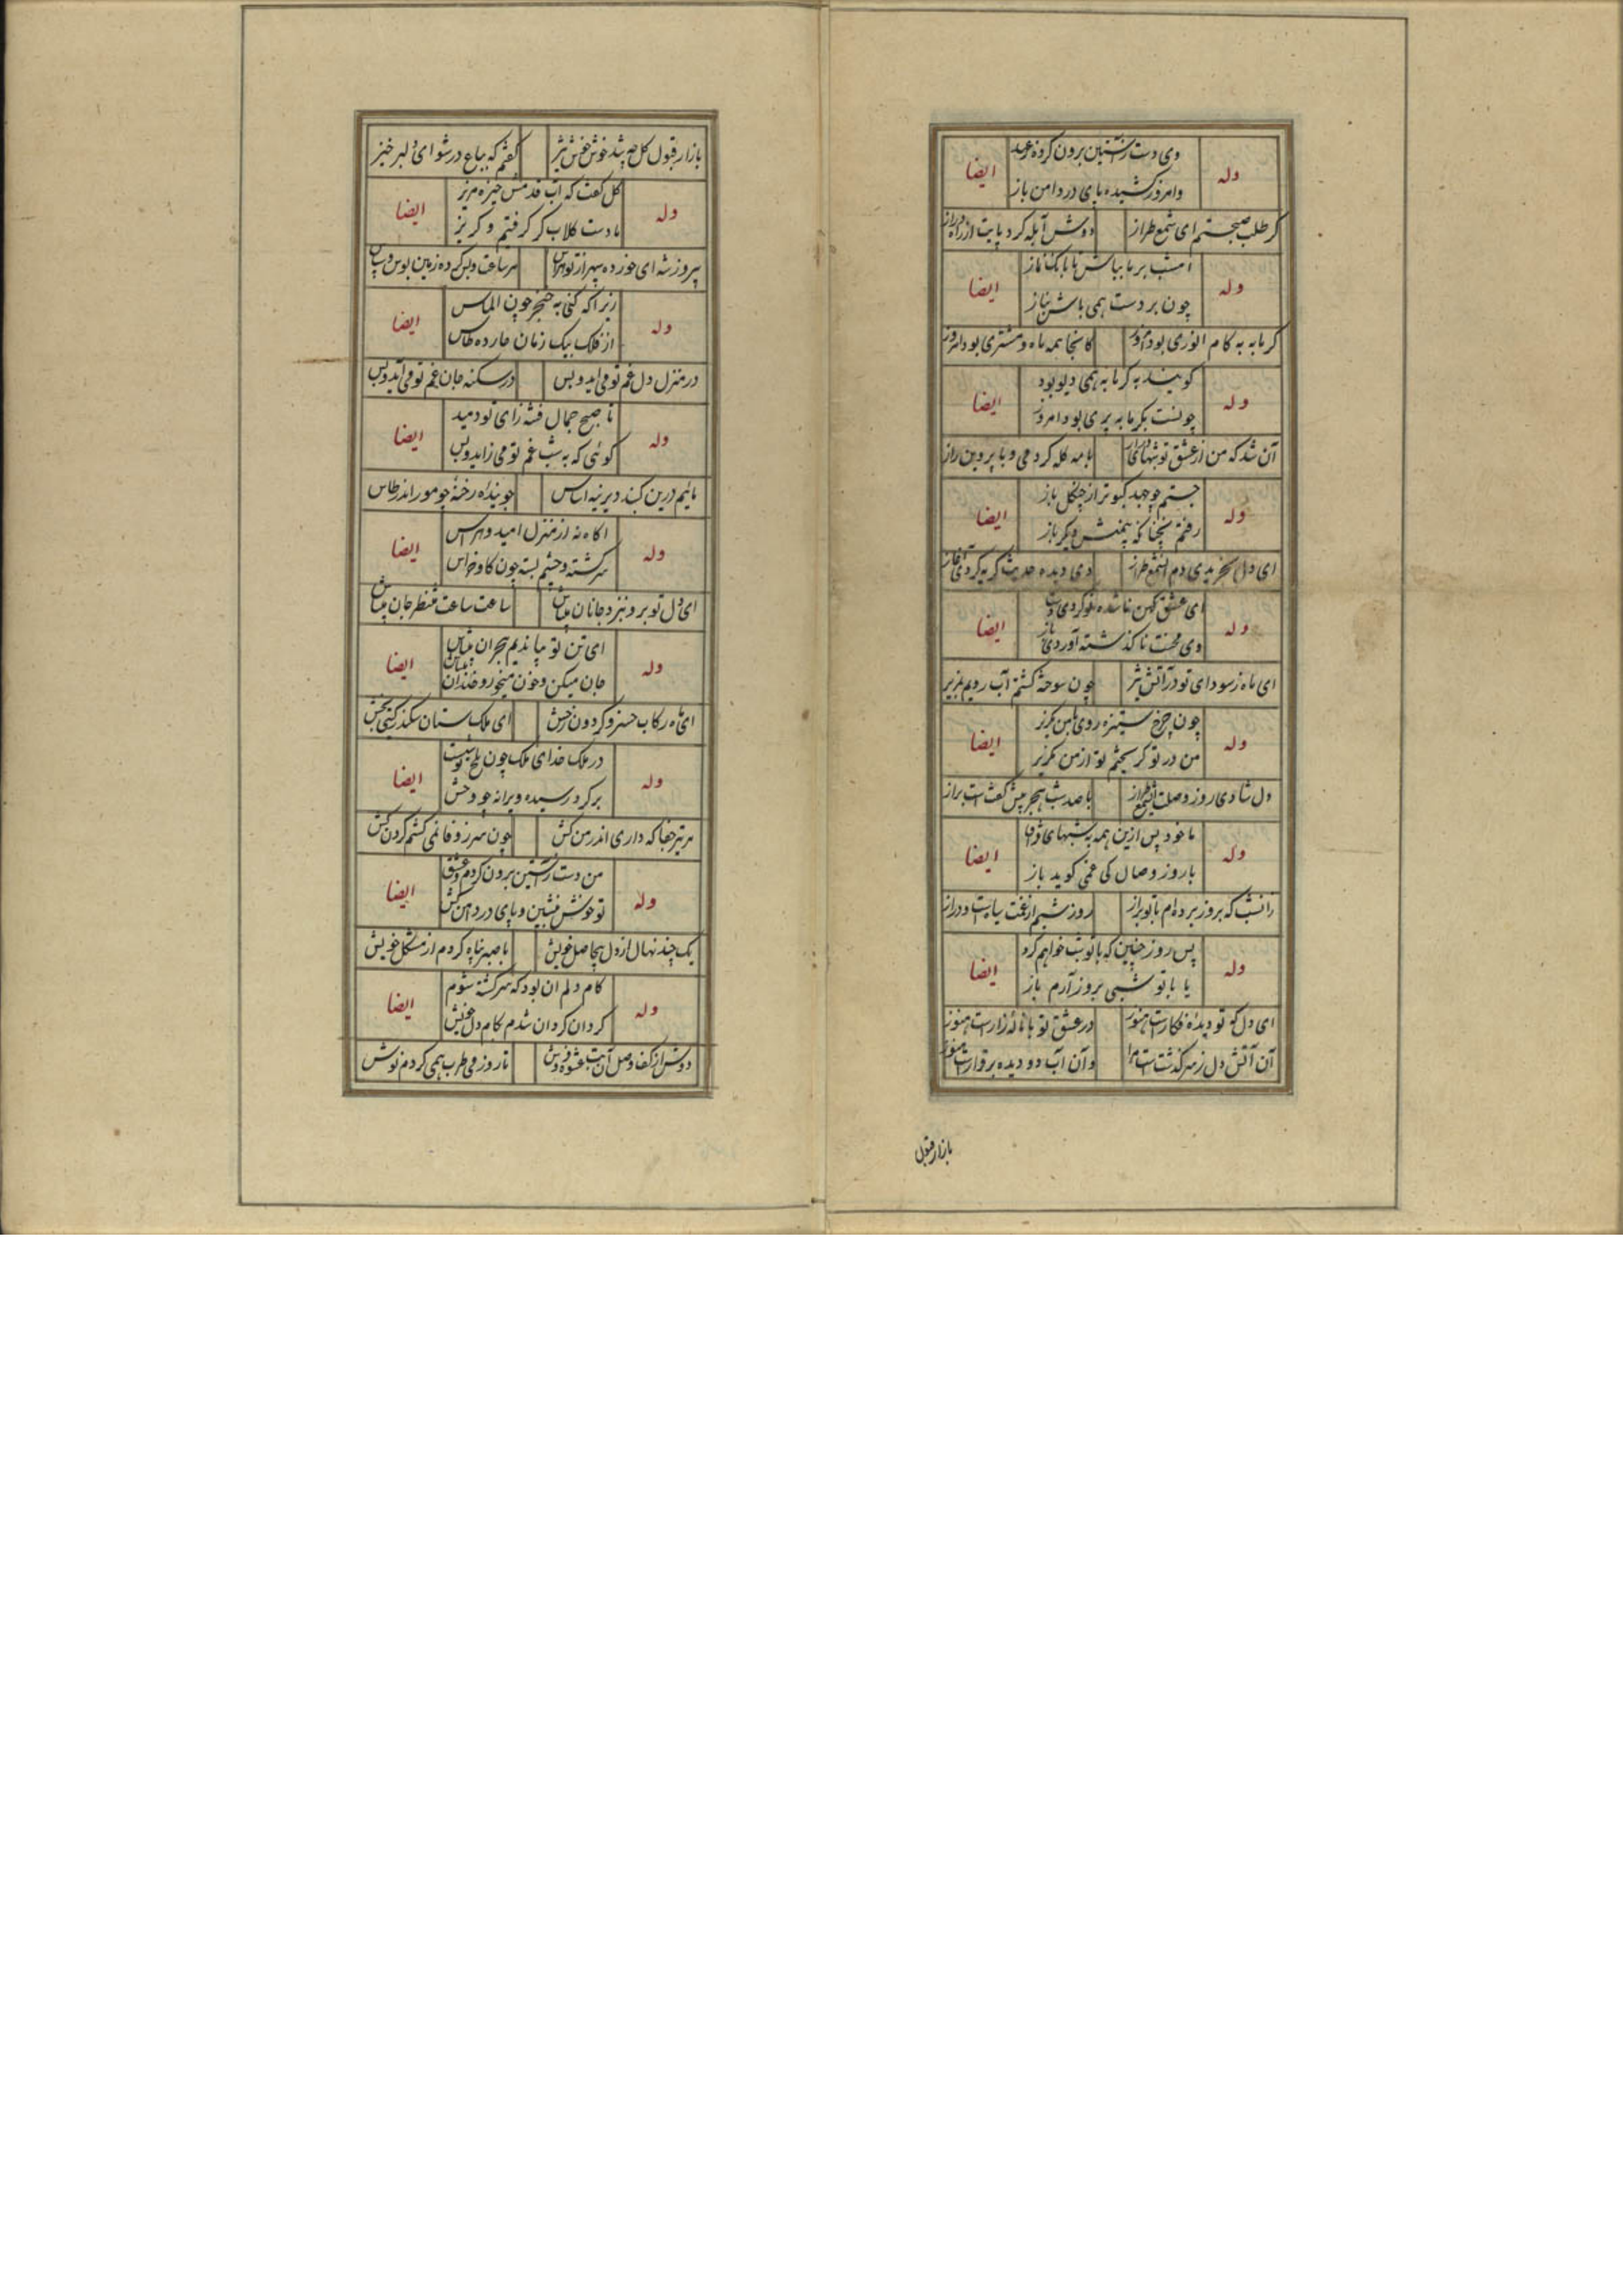 وله دی دست ز آستین برون کرده وعید ایضا
وامروز کشیده پای در دامن باز
کر طلب صحبتم ای شمع طراز دوش آبله کرد پایت از راه دراز
وله امشب بر ما بباش تا بانک نماز ایضا
چون بر دست همی باش بناز
کرمابه به کام انوری بود امروز کانجا همه ماه و مشتری بود امروز
وله کویند به کرمابه همی دیو بود ایضا
چونست بکرمابه پری بود امروز
آن شد که من از عشق تو شبهای دراز با مه کله کردمی و با پروین راز
وله جستم چو کبوتر از چنکل باز ایضا
رفتم نچنانکه بینمش دیکر باز
ای دل بخریدی دم آن شمع طراز وی دیده حدیث کریه کردی آغاز
وله ای عشق کهن ناشده نو کردی دست ایضا
وی محنت ناکذشته آوردی باز
ای ماه ز سودای تو در آتش تیز چون سوخته کشتم آب رویم بمریز
وله چون چرخ ستیزه روی با من مستیز ایضا
من در تو کریختم تو از من مکریز
دل شادی روز وصلت ای شمع طراز با صد شب هجر پیش کفت است براز
وله تا خود پس ازین همه شبهای دراز ایضا
با روز وصال کی غمی کوید باز
زان شب که بروز برده ام با تو براز روز و شبم از غمت سیاهست و دراز
وله پس روز چنین که با تو شب خواهم کرد ایضا
یا با تو شبی بروز آرم باز
ای دل کو تو دیده فکارست هنوز در عشق تو با ناله زارست هنوز
آن آتش دل ز سر کذشتست مرا وآن آب دو دیده برقرارست هنوز
بازار قبول
بازار قبول کل چو شد خوش خوش تیز کفتم که بباغ در شو ای دلبر خیز
وله کل کفت که آب قدمش خیره مریز ایضا
ما دست کلاب کر کرفتیم و کریز
پیروز شه ای خورده سپهر از تو هراس هر ساعت و بس کرده زمین بوس و سپاس
وله زیرا که کنی به خنجر چون الماس ایضا
از فلک بیک زمان چارده طاس
در منزل دل غم تو می آید و بس در سکنه جان غم تو می آید و بس
وله تا صبح جمال فتنه زای تو دمید ایضا
کوئی که به شب غم تو می زاید و بس
مائیم درین کنبد دیرینه اساس جوینده رخنه چو مور اندر طاس
وله اکاه نه از منزل امید و هراس ایضا
سرکشته و چشم بسته چون کاو خراس
ای دل تو برو نزد جانان میباش ساعت ساعت منتظر جان میباش
وله ای تن تو بیا ندیم هجران میباش ایضا
جان میکن و خون میخور و خندان میباش
ای ماه رکاب خسرو کردون رخش ای ملک ستان سکندر کیتی بخش
وله در ملک خدای ملک چون بلخ توست ایضا
برکرد رسیده ویرانه چو وخش
هر تیر جفا که داری اندر من کش چون سر ز وفا نمی کشم کردن کش
وله من دست ز آستین برون کردم و عشق ایضا
تو خوش بنشین و پای در دامن کش
یک چند نهان از دل بیحاصل خویش با صبر پناه کردم از مشکل خویش
وله کام دلم آن بود که سرکشته شوم ایضا
کردان کردان شدم بکام دل خویش
دوش از وصل آن بت عشوه فروش تا روز می طرب همی کردم نوش